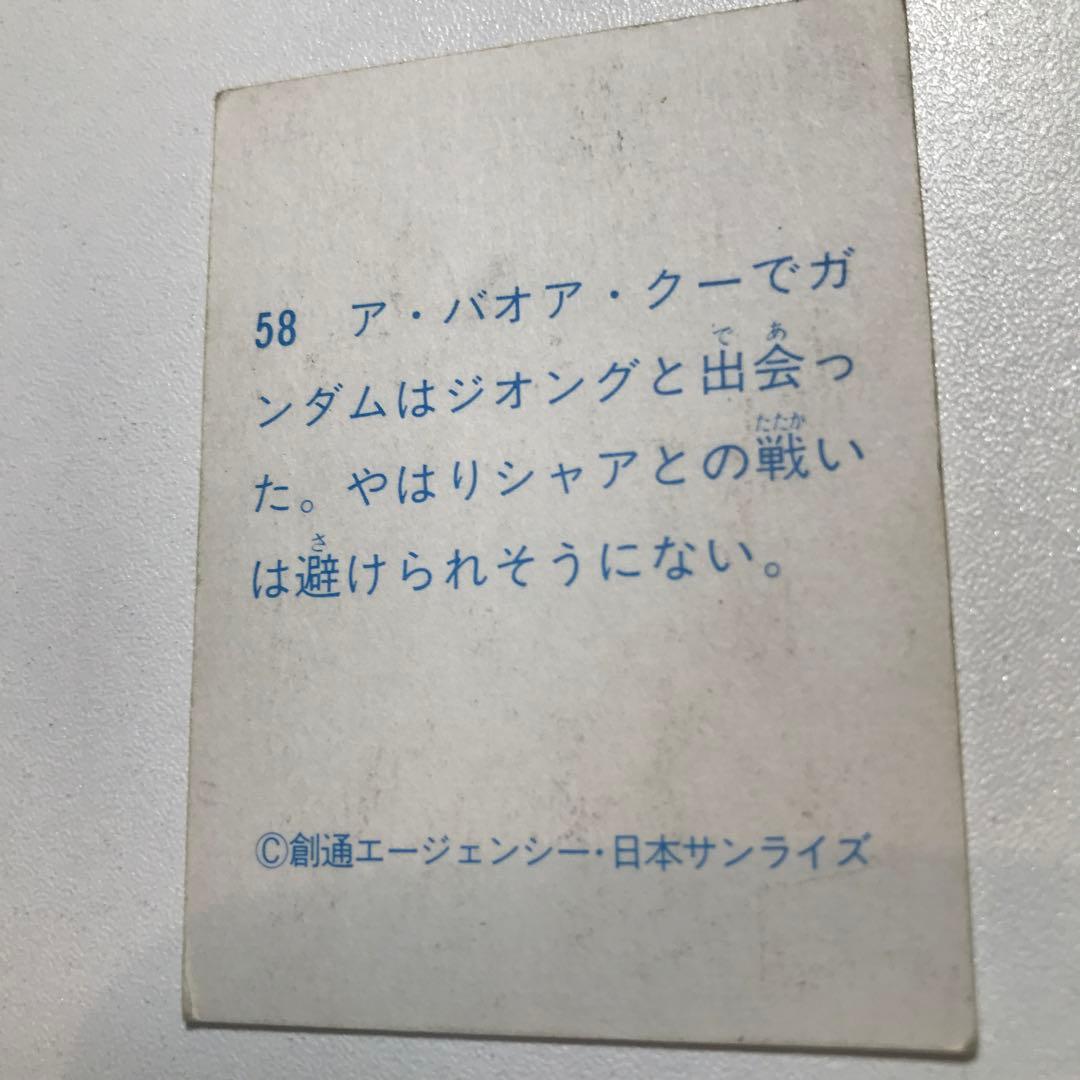 58 ア・バオア・クーでガ
ンダムはジオングと出会っ
た。やはりシャアとの戦い
は避けられそうにない。
©創通エージェンシー・日本サンライズ